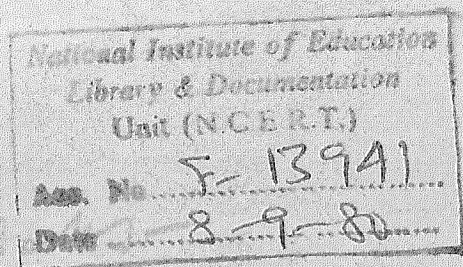 National Institute of Education
Library & Documentation
Unit (N.C.E.R.T.)
Acc. No..... F- 13941
Date ..... 8-9-80